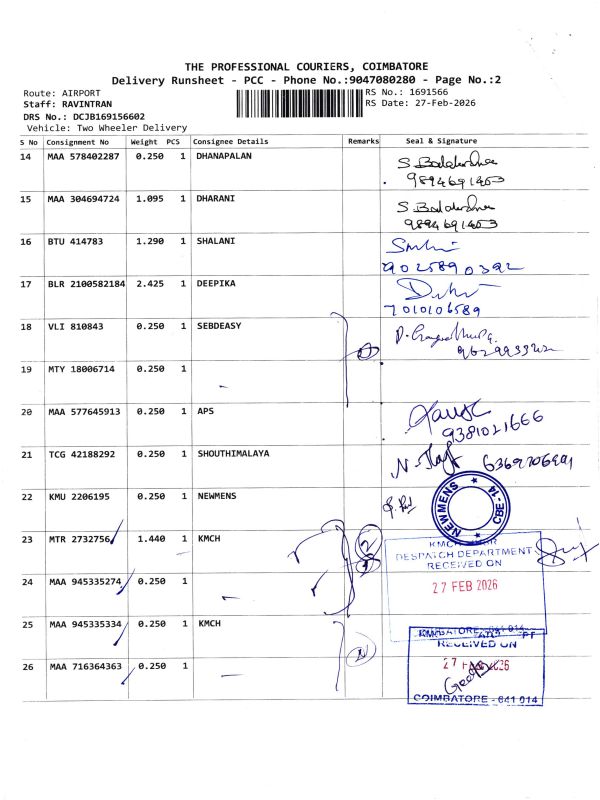 THE PROFESSIONAL COURIERS, COIMBATORE
Delivery Runsheet - PCC - Phone No.:9047080280 - Page No.:2
Route: AIRPORT
RS No.: 1691566
Staff: RAVINTRAN
RS Date: 27-Feb-2026
DRS No.: DCJB169156602
Vehicle: Two Wheeler Delivery
S No Consignment No Weight PCS Consignee Details Remarks Seal & Signature
14 MAA 578402287 0.250 1 DHANAPALAN
9894691403
15 MAA 304694724 1.095 1 DHARANI
9894691403
16 BTU 414783 1.290 1 SHALANI
9025890392
17 BLR 2100582184 2.425 1 DEEPIKA
7010106589
18 VLI 810843 0.250 1 SEBDEASY
19 MTY 18006714 0.250 1
20 MAA 577645913 0.250 1 APS
9381021666
21 TCG 42188292 0.250 1 SHOUTHIMALAYA
22 KMU 2206195 0.250 1 NEWMENS
NEWMENS ★ CBE-14 ★
23 MTR 2732756 1.440 1 KMCH 2
DESPATCH DEPARTMENT
RECEIVED ON
27 FEB 2026
24 MAA 945335274 0.250 1
25 MAA 945335334 0.250 1 KMCH
RECEIVED ON
26 MAA 716364363 0.250 1
COIMBATORE - 641 014